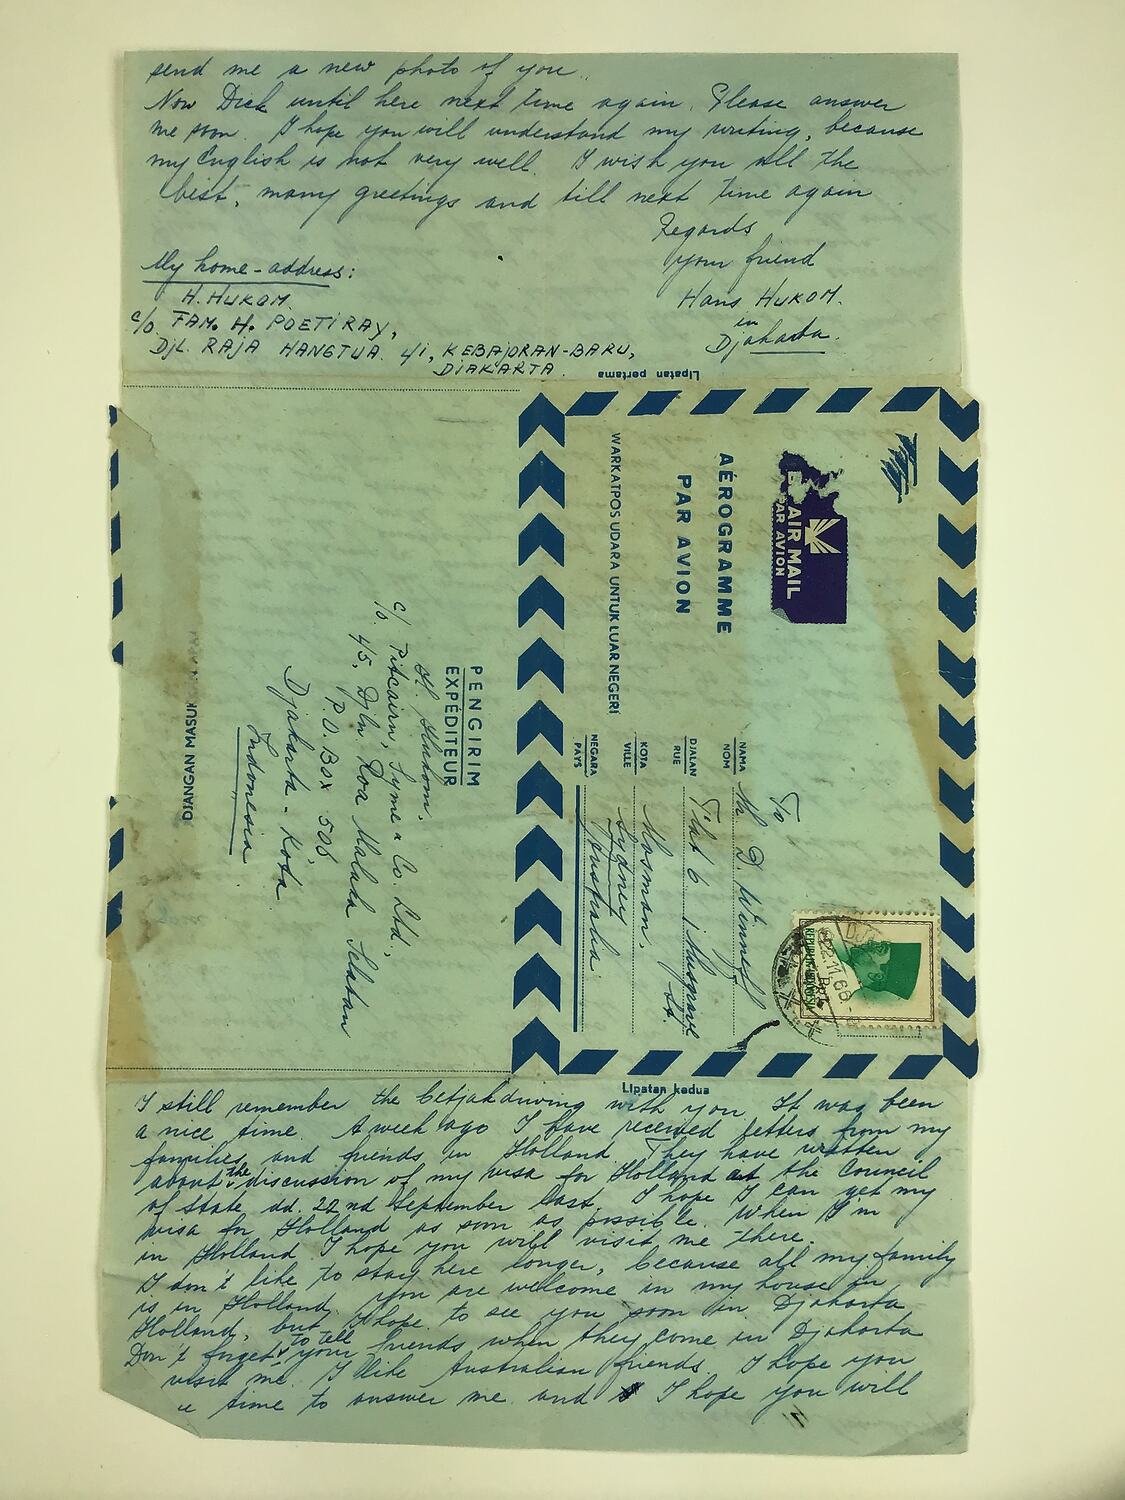 send me a new photo of you.
Now Dick until here next time again. Please answer
me soon. I hope you will understand my writing, because
my English is not very well. I wish you all the
best, many greetings and till next time again
Regards
your friend
Hans HUKOM.
in
Djakarta.
My home-address:
H. HUKOM.
c/o FAM. H. POETIRAY,
DJL. RAJA HANGTUA 4/1, KEBAJORAN-BARU,
DJAKARTA.
Lipatan pertama
AIR MAIL
PAR AVION
AÉROGRAMME
PAR AVION
WARKATPOS UDARA UNTUK LUAR NEGERI
To
NAMA
NOM
Mr D. Winnell
DJALAN
RUE
Flat 6 1 Musgrave
St.
KOTA
VILLE
Mosman,
Sydney
NEGARA
PAYS
Australia
22.11.66
REPUBLIK INDONESIA
PENGIRIM
EXPÉDITEUR
H. Hukom,
c/o Pitcairn, Syme & Co. Ltd.,
4/5, Djln Roa Malaka Selatan
P.O. Box 508
Djakarta - Kota
Indonesia
DJANGAN MASUK
Lipatan kedua
I still remember the betjakdriving with you. It was been
a nice time. A week ago I have received letters from my
families and friends in Holland. They have written
about the discussion of my visa for Holland at the Council
of State dd. 22nd September last. I hope I can get my
visa for Holland as soon as possible. When I'm
in Holland I hope you will visit me there.
I don't like to stay here longer, because all my family
is in Holland. you are welcome in my house in
Holland, but I hope to see you soon in Djakarta
Don't forget to tell your friends when they come in Djakarta
visit me. I like Australian friends. I hope you
time to answer me and I hope you will